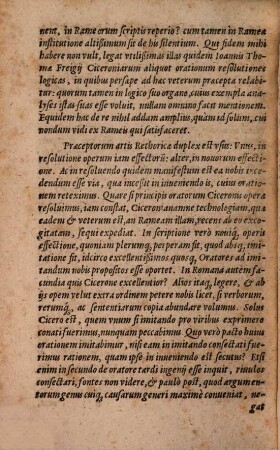 nent, in Rameorum scriptis reperio? cum tamen in Ramea
institutione altissimum sit de hu silentium. Qui fidem mihi
habere non vult, legat vtilissimas illas quidem Ioannis Tho-
mæ Freigij Ciceronianarum aliquot orationum resolutiones
logicas, in quibus persæpe ad hæc veterum præcepta relabi-
tur: quorum tamen in logico suo organo, cuius exempla ana-
lyses istas suas esse voluit, nullam omnino facit mentionem.
Equidem hac de re nihil addam amplius, quàm id solum, cui
nondum vidi ex Rameis qui satisfaceret.
Præceptorum artis Rethoricæ duplex est vsus: Vnus, in
resolutione operum iam effectorũ: alter, in nouorum effecti-
one. Ac in resoluendo quidem manifestum est ea nobis ince-
dendum esse via, qua incessit in inueniendo is, cuius ora-
tionem reteximus. Quare si principis oratorum Ciceronis opera
resoluimus, iam constat, Ciceronianam technologiam, quæ
eadem & veterum est, an Rameam illam, recens ab eo exco-
gitatam, sequi expediat. In scriptione verò noniq́, operis
effectione, quoniam plerumq́, perperam fit, quod absq́, imi-
tatione fit, idcirco excellentißimos quosq́, Oratores ad imi-
tandum nobis propositos esse oportet. In Romana autem fa-
cundia quis Cicerone excellentior? Alios itaq́, legere, & ab
ijs opem velut extra ordinem petere nobis licet, si verborum,
rerumq́, ac sententiarum copia abundare volumus. Solus
Cicero est, quem vnum si imitando pro viribus exprimere
conati fuerimus, nunquam peccabimus. Quo verò pacto huius
orationem imitabimur, nisi eam in imitando consectati fue-
rimus rationem, quam ipse in inueniendo est secutus? Etsi
enim in secundo de oratore tardi ingenij esse inquit, riuulos
consectari, fontes non videre, & paulò pòst, quod argumen-
torum genus cuiq́, causarum generi maximè conueniat, ne-
gat